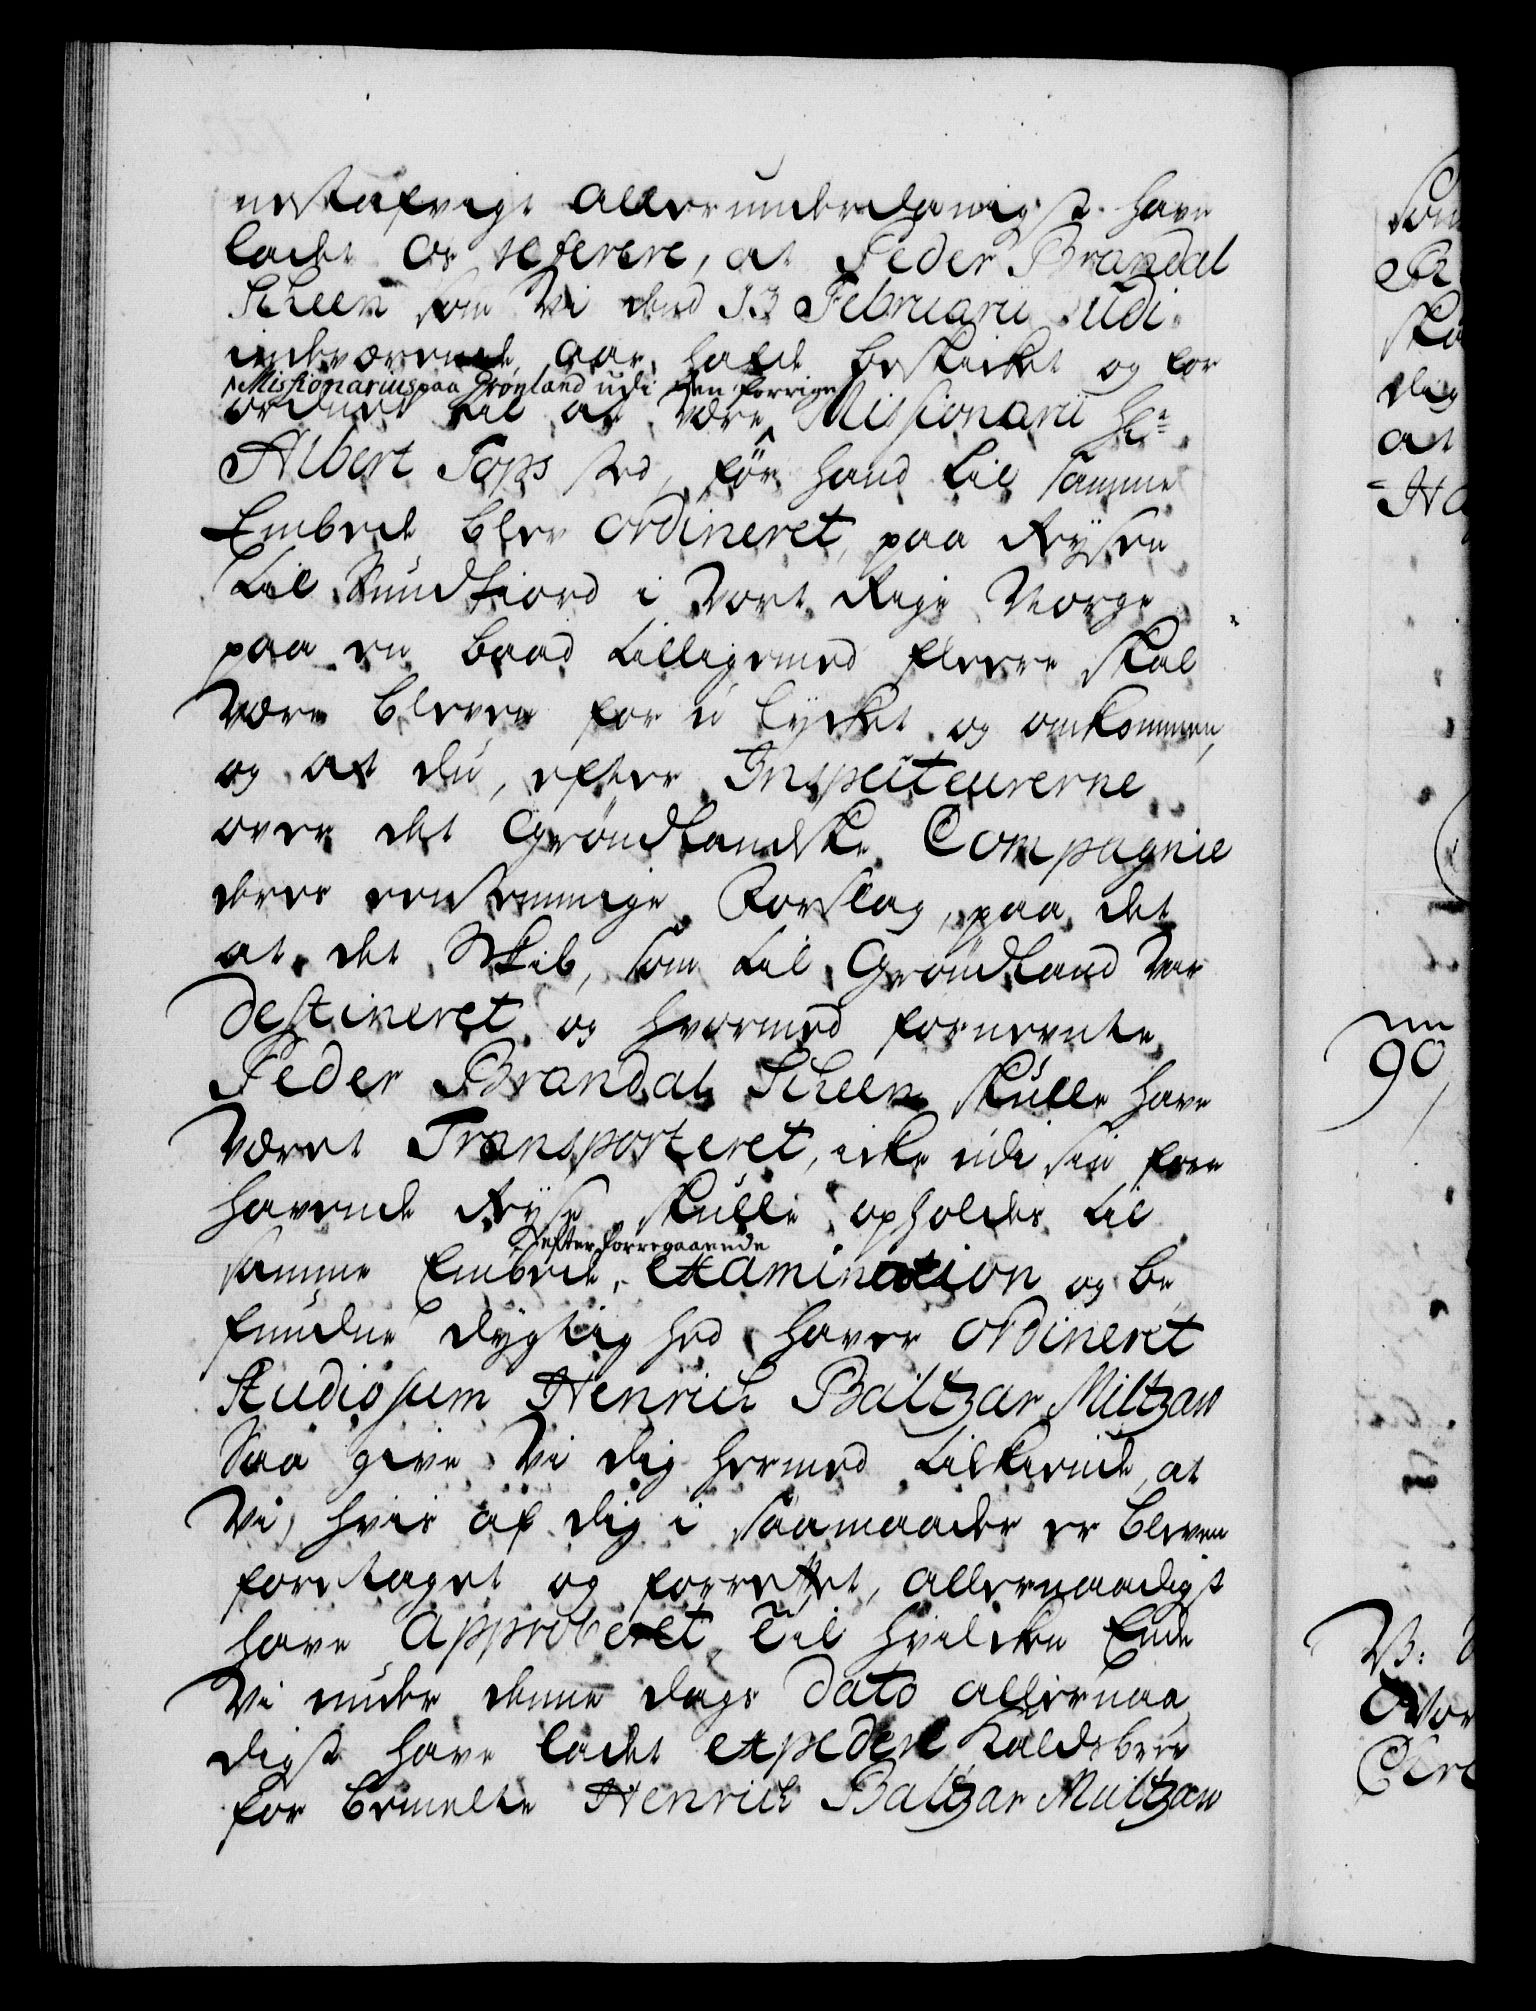 nestafvigt allerunderdanigst have
ladet Os referere, at Peder Brandal
Scheen som Vi dend 13 Februarii udi
indeværende aar hafde beskicket og for
Missionarius paa Grønland udi den forrige
ordnet til at være Missionarii Hr
Albert Tops sted, før hand til samme
Embede blev ordineret, paa Reysen
til Sundfiord i Vort Rige Norge
paa en baad tilligemed fleere skal
være bleven for u-lycket og omkommen,
og at du, efter Inspecteurerne
over det Grøndlandske Compagnie
deres eenstemmige Forslag, paa det
at det Skib, som til Grøndland var
destineret og hvormed fornevnte
Peder Brandal Scheen skulle have
været Transporteret, icke udi sin fore
havende Reyse skulle opholdes til
efter forregaaende
samme Embede, examination og be
fundne dygtighed haver ordineret
Studiosum Henrich Baltzar Miltzow
Saa give Vi dig hermed tilkiende, at
Vi, hvis af dig i saamaader er bleven
foretaget og forrettet, allernaadigst
have approberet Til hvilcken Ende
Vi under denne dags dato allernaa
digst have ladet expedere Kaldsbrev
for bemelte Henrich Baltzar Miltzow